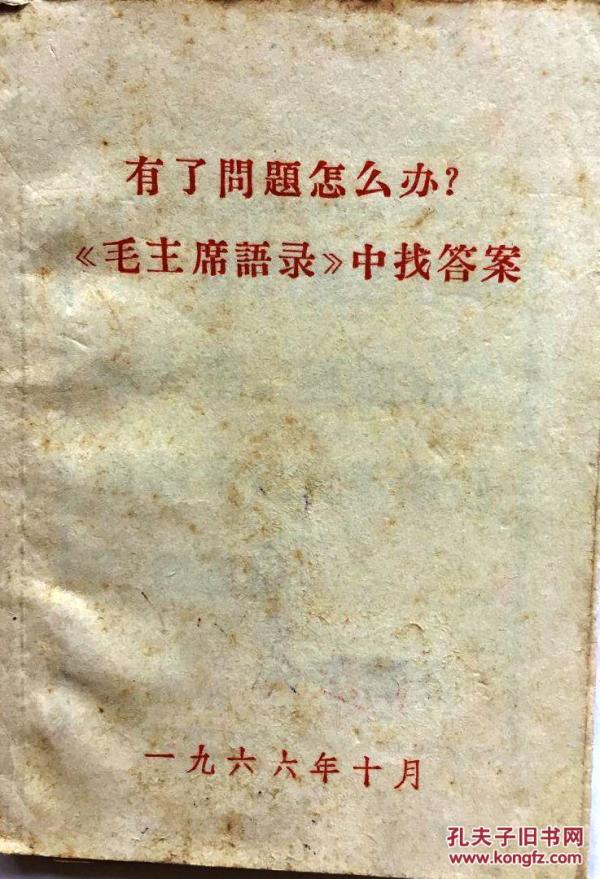 有了問題怎么办?
《毛主席語录》中找答案
一九六六年十月
孔夫子旧书网
www.kongfz.com